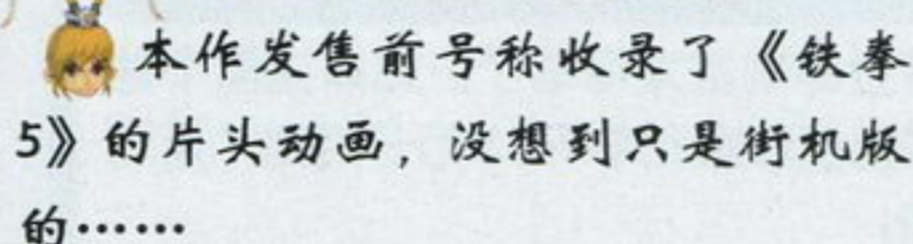 本作发售前号称收录了《铁拳
5》的片头动画，没想到只是街机版
的……